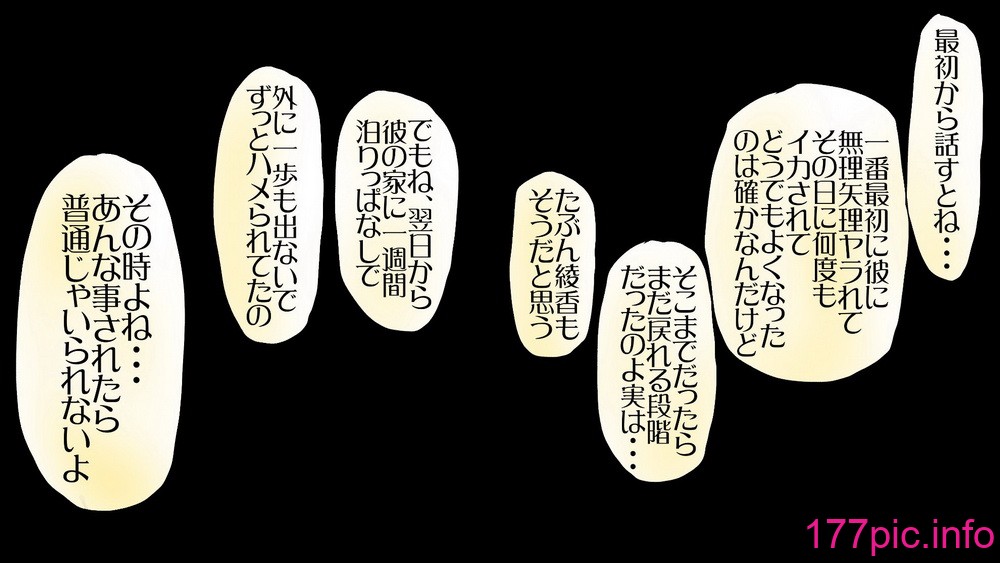 最初から話すとね・・・
一番最初に彼に
無理矢理ヤラれて
その日に何度も
イカされて
どうでもよくなった
のは確かなんだけど
そこまでだったら
まだ戻れる段階
だったのよ実は・・・
たぶん綾香も
そうだと思う
でもね、翌日から
彼の家に一週間
泊りっぱなしで
外に一歩も出ないで
ずっとハメられてたの
その時よね・・・
あんな事されたら
普通じゃいられないよ
177pic.info